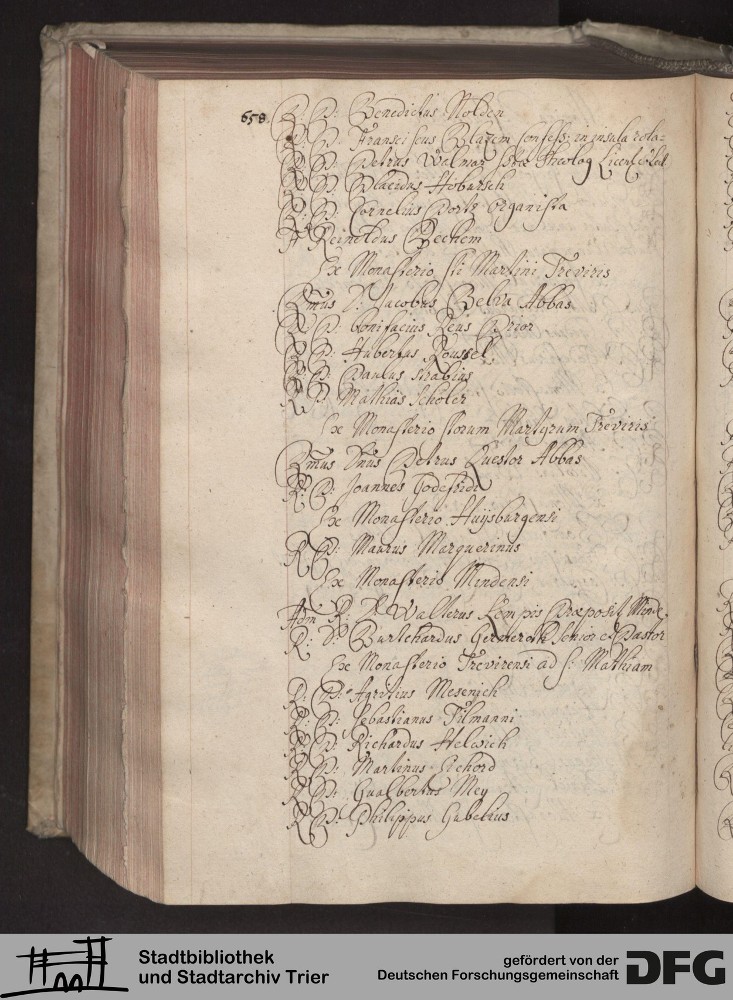 658.
R: D: Benedictus Nolden
R: D: Franciscus Blatzem Confess: in insula rola=
R: D: Petrus Welmar Theolog Licent
R: D: Placidus Hobursch
R: D: Cornelius Portz Organista
Fr Reinoldus Bechem
Ex Monasterio Sti Martini Treviris
Rmus D: Jacobus Abbas
R: D: Bonifacius Reus Prior
R: D: Hubertus Roussel
R: D: Paulus Strabius
R: D: Mathias Scholer
Ex Monasterio Storum Martyrum Treviris
Rmus Dnus Petrus Questor Abbas
R: D: Joannes Godefridi
Ex Monasterio Huijsburgensi
R: D: Maurus Marquerinus
Ex Monasterio Mindensi
Adm R: D Wallerus Præposit Minde:
R: D: Burchardus Senior et Pastor
Ex Monasterio Trevirensi ad S: Mathiam
R: D: Agritius Mesenich
R: D: Sebastianus Tilmanni
R: D: Richardus Helwich
R: D: Martinus
R: D: Gualbertus Mey
R: D: Philippus Gubelius
Stadtbibliothek
und Stadtarchiv Trier
gefördert von der
Deutschen Forschungsgemeinschaft
DFG